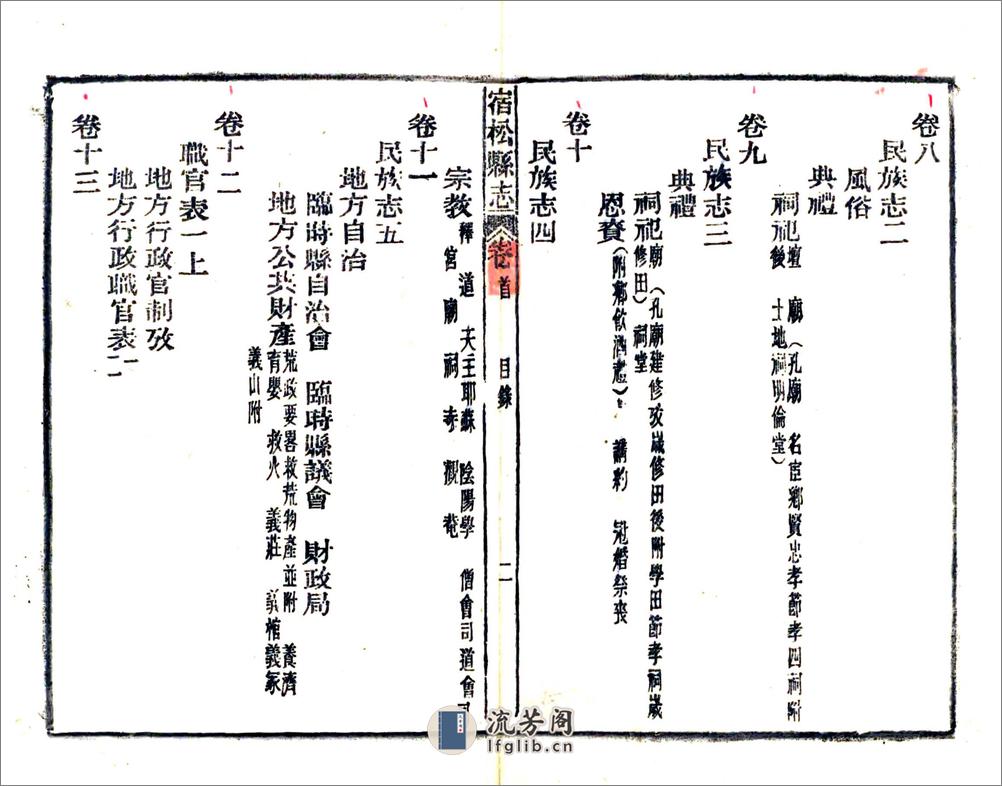 卷八
民族志二
風俗
典禮
祠祀壇 廟（孔廟 名宦鄉賢忠孝節孝四祠附
後 土地祠明倫堂）
卷九
民族志三
典禮
祠祀廟（孔廟建修攷歲修田後附學田節孝祠歲
修田）祠堂
恩賚（附鄉飲酒禮） 講約 冠婚祭喪
卷十
民族志四
宿松縣志 卷首 目錄 二
宗教釋 道 天主耶蘇 陰陽學 僧會司道會司
宮 廟 祠 寺 觀 菴
卷十一
民族志五
地方自治
臨時縣自治會 臨時縣議會 財政局
地方公共財產荒政要畧救荒物產並附 養濟
育嬰 救火 義莊 義棺義冢
義山附
卷十二
職官表一上
地方行政官制攷
地方行政職官表一
卷十三
流芳阁
lfglib.cn